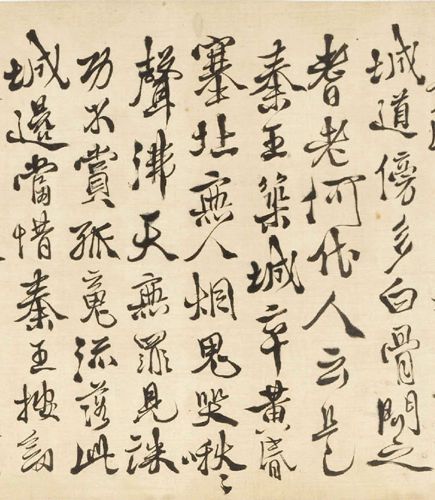 城道傍多白骨問之
耆老何代人云是
秦王築城卒黃昏
塞北無人烟鬼哭啾〻
聲沸天無罪見誅
功不賞孤魂流落此
城邊當惜秦王按劍